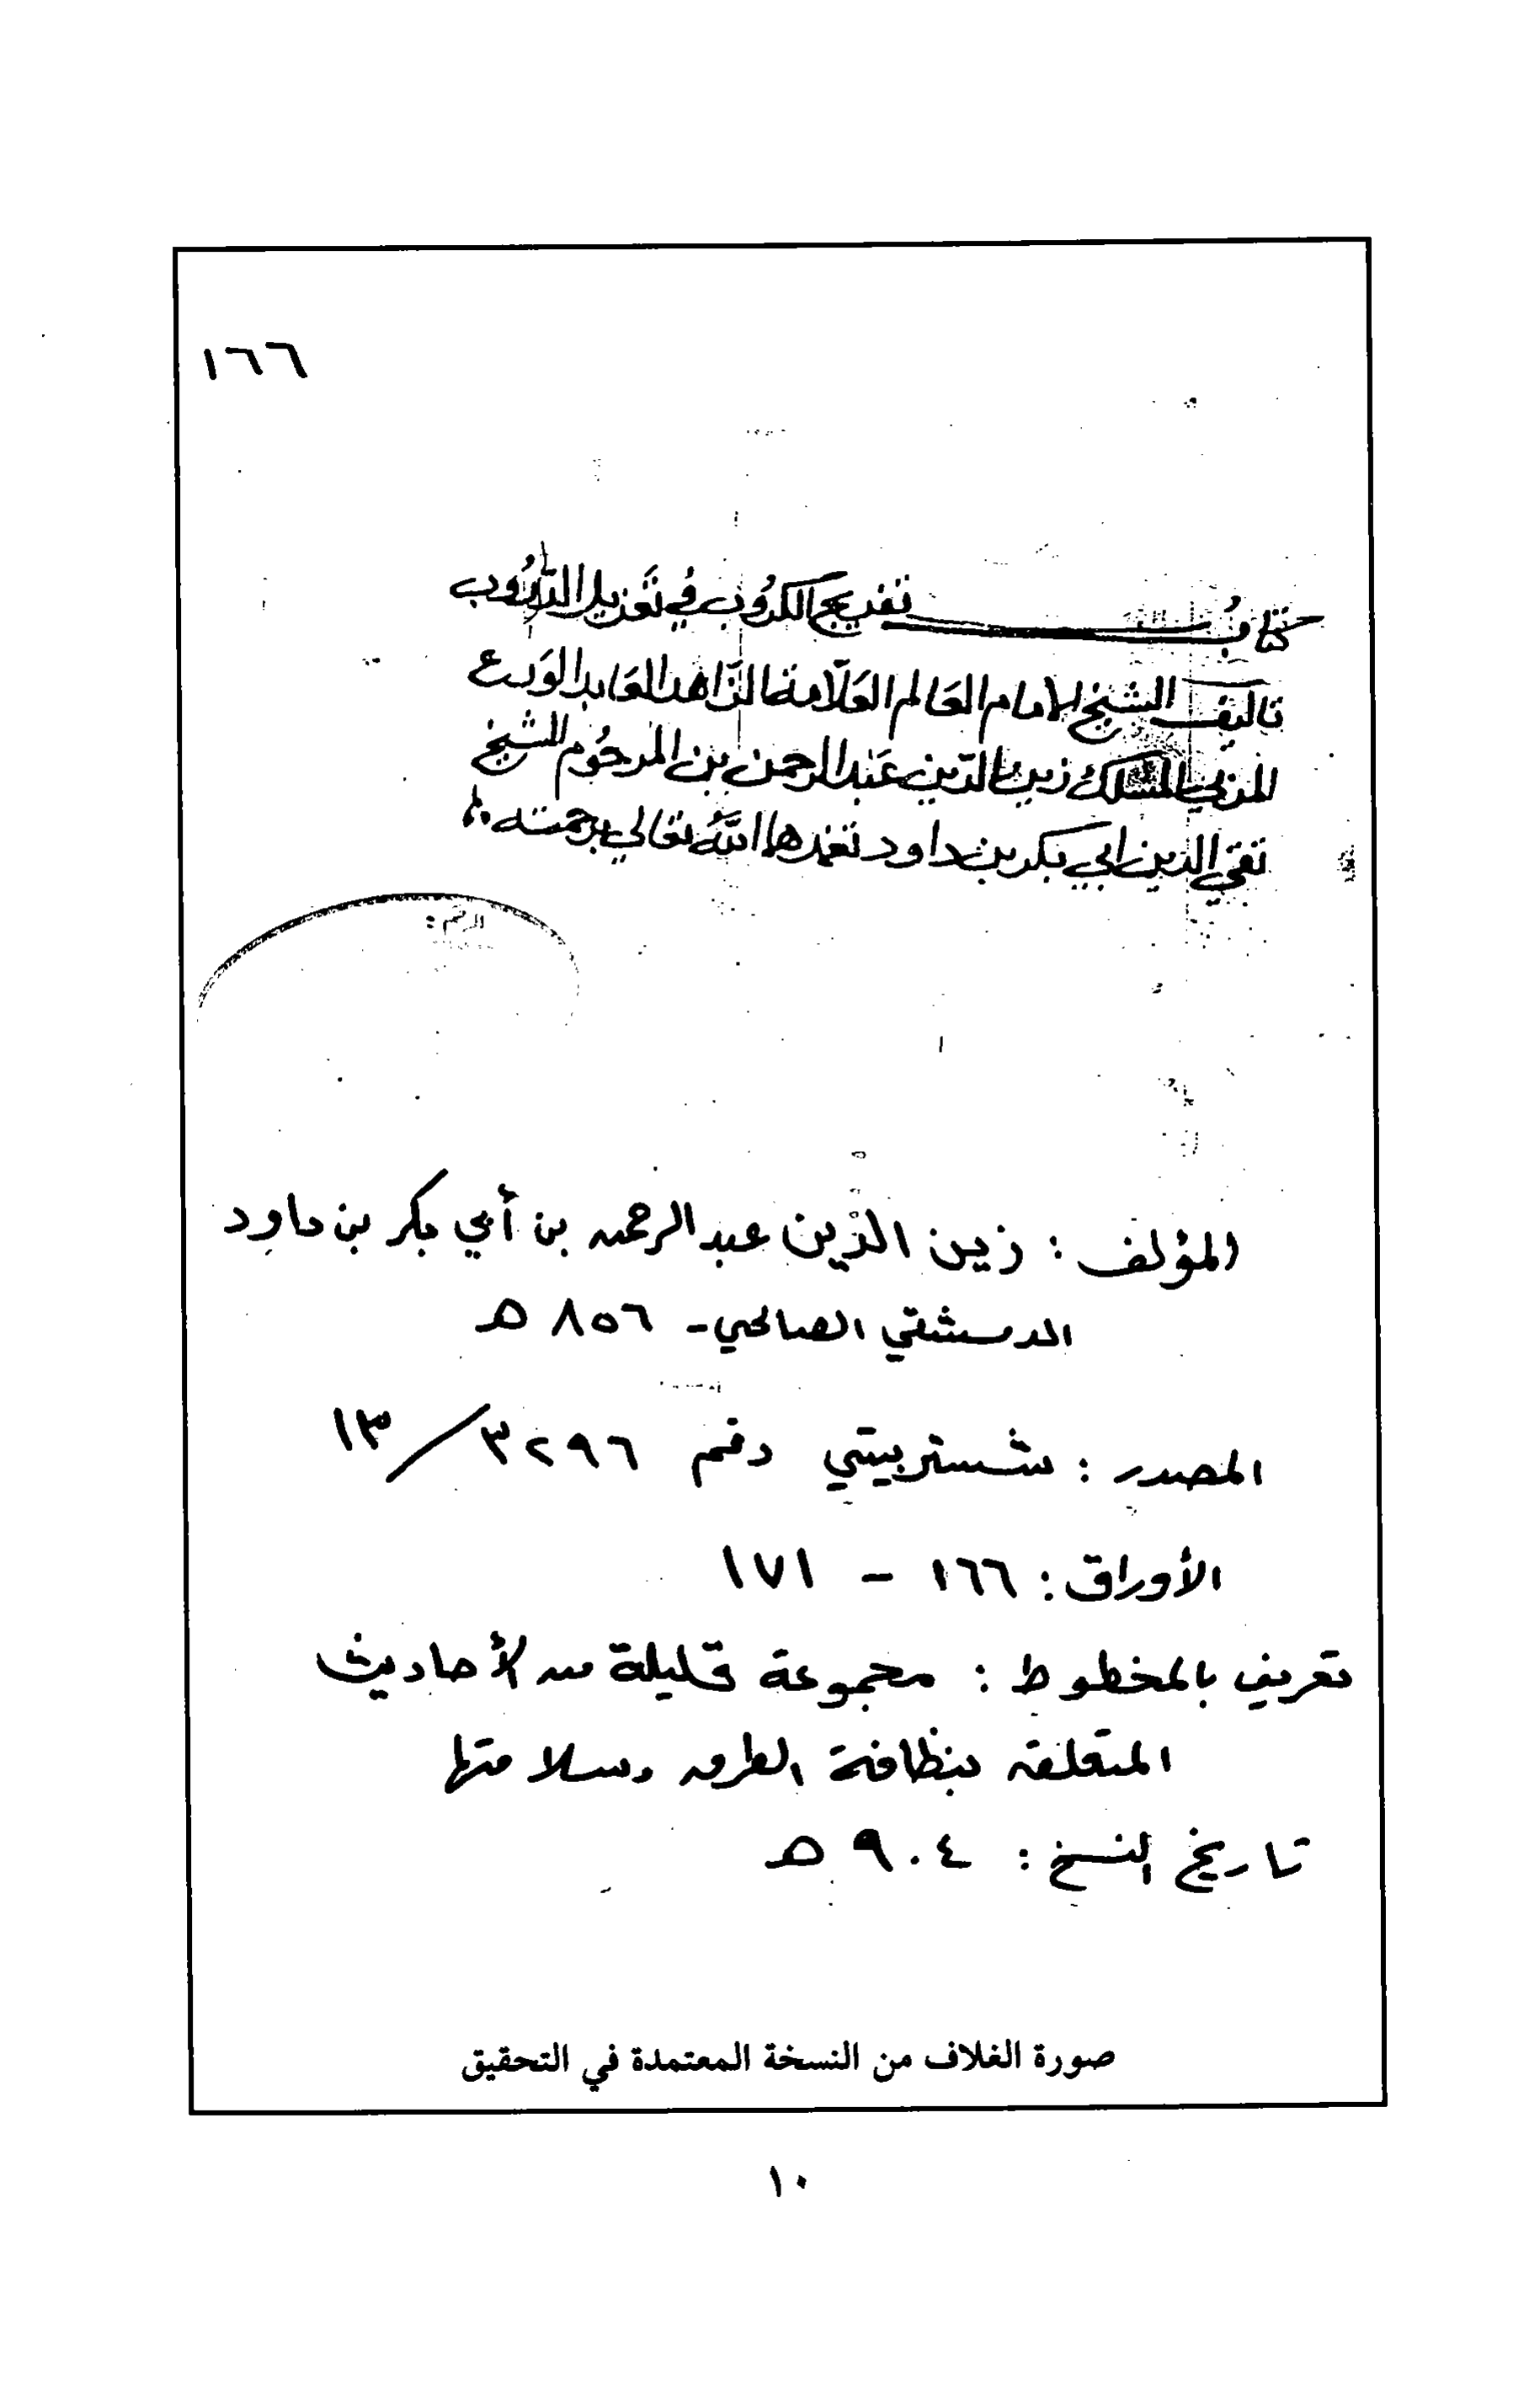 ١٦٦
كتاب تفريج الكروب في تعزيل الدروب
تاليف الشيخ الامام العالم العلامة الزاهد العابد الورع
المربي المسلك زين الدين عبد الرحمن بن المرحوم الشيخ
تقي الدين ابي بكر بن داود تغمدهما الله تعالي برحمته
المؤلف : زين الدّين عبد الرحمن بن أبي بكر بن داود
الدمشقي الصالحي - ٨٥٦ هـ
المصدر : شستربيتي رقم ٣٢٩٦ / ١٣
الأوراق : ١٦٦ - ١٧١
تعريف بالمخطوط : مجموعة قليلة من الأحاديث
المتعلقة بنظافة الطرق وسلامتها
تاريخ النسخ : ٩٠٤ هـ
صورة الغلاف من النسخة المعتمدة في التحقيق
١٠